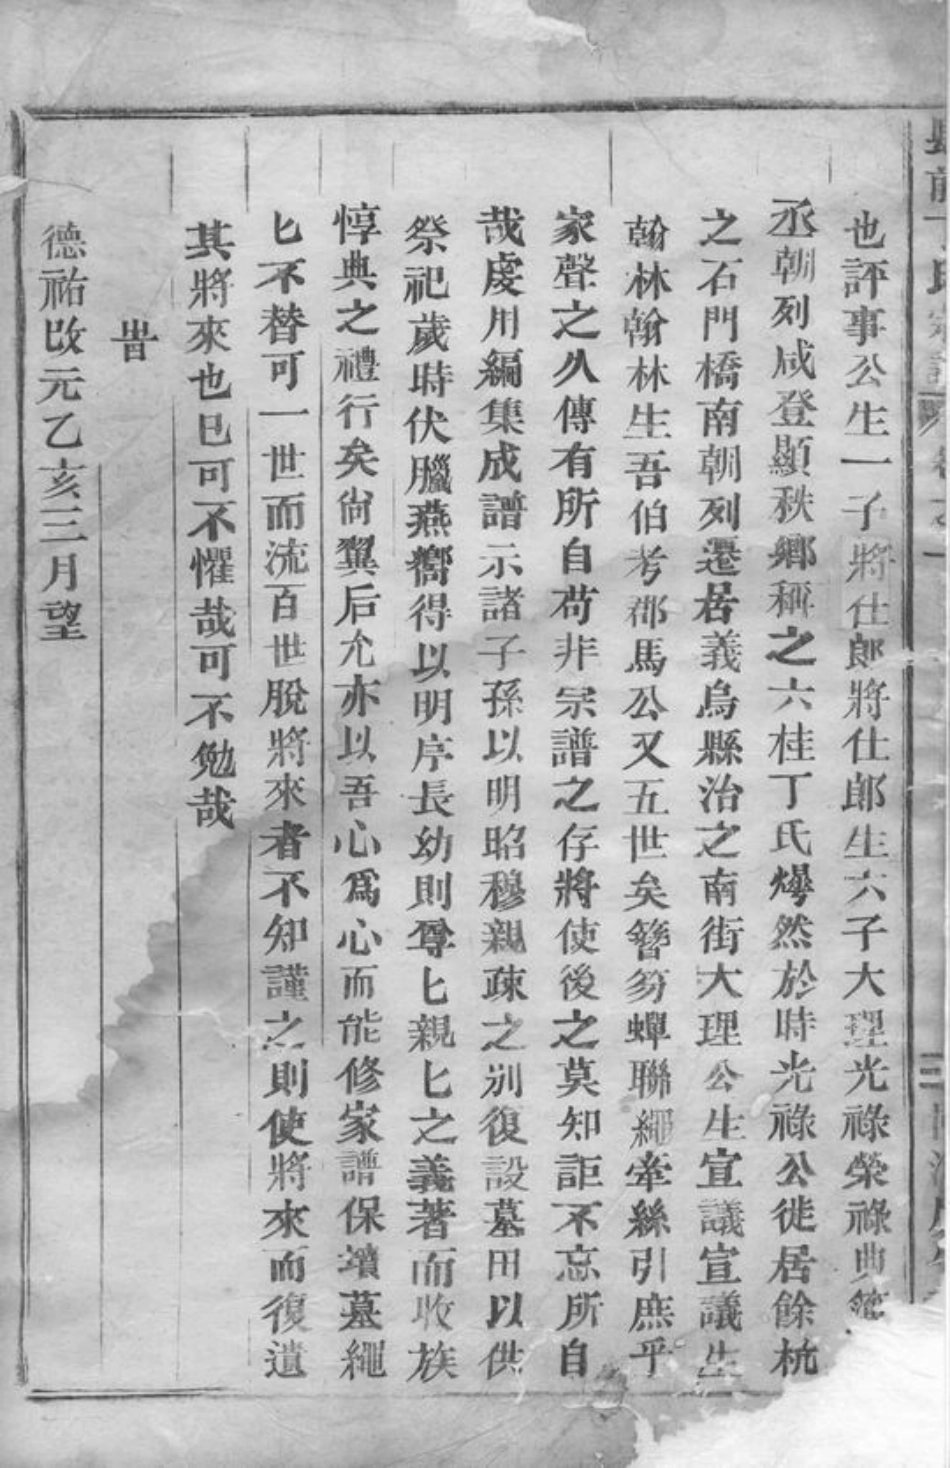 也評事公生一子將仕郎將仕郎生六子大理光祿榮祿典簿
丞朝列咸登顯秩鄉稱之六桂丁氏燁然於時光祿公徙居餘杭
之石門橋南朝列遷居義烏縣治之南街大理公生宣議宣議生
翰林翰林生吾伯考郡馬公又五世矣簪笏蟬聯繩牽絲引庶乎
家聲之久傳有所自苟非宗譜之存將使後之莫知詎不忘所自
哉虔用編集成譜示諸子孫以明昭穆親疎之別復設墓田以供
祭祀歲時伏臘燕嚮得以明序長幼則尊匕親匕之義著而收族
惇典之禮行矣尙翼后允亦以吾心爲心而能修家譜保墳墓繩
匕不替可一世而流百世脫將來者不知謹之則使將來而復遺
其將來也已可不懼哉可不勉哉
旹
德祐改元乙亥三月望